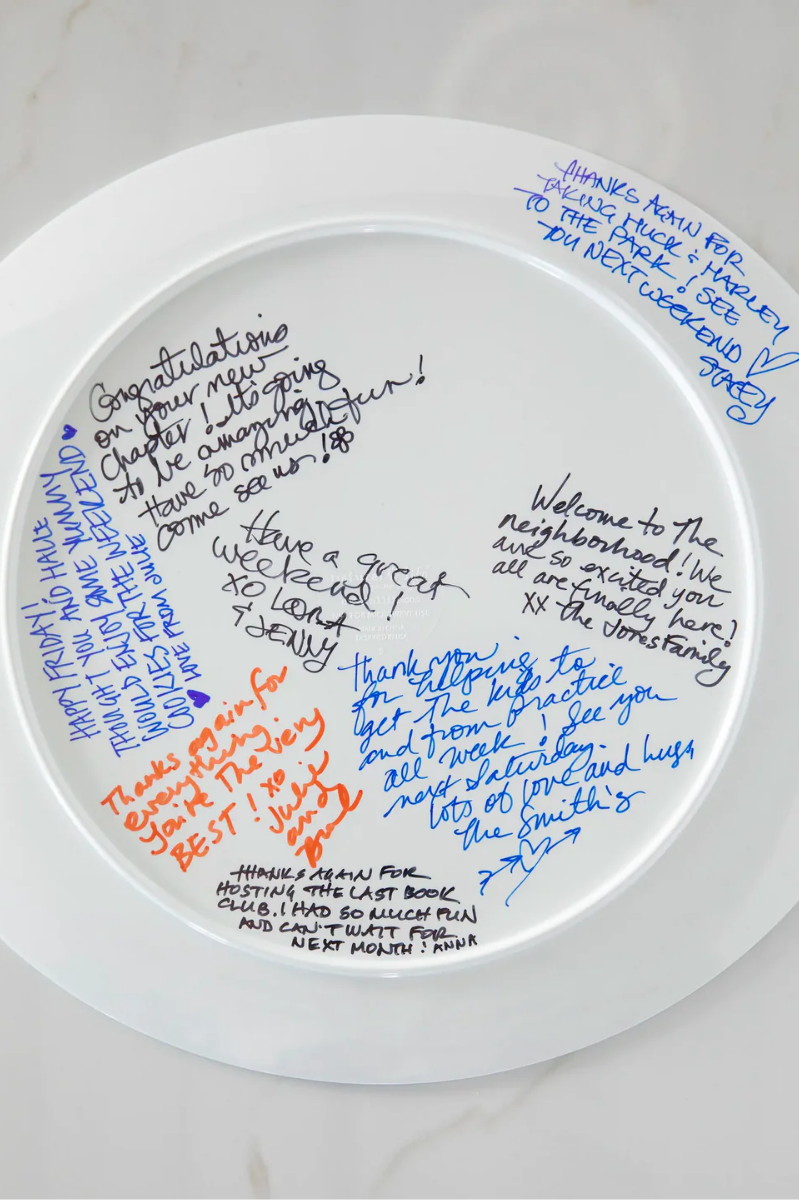 THANKS AGAIN FOR
TAKING HUCK & HARLEY
TO THE PARK! SEE
YOU NEXT WEEKEND ♡
STACEY
Congratulations
on your new
chapter! It's going
to be amazing!
Have so much fun!
come see us!
HAPPY FRIDAY!
THOUGHT YOU AND HALIE
WOULD ENJOY SOME YUMMY
COOKIES FOR THE WEEKEND ♥
♥ LOVE FROM JULIE
Have a great
weekend!
XO LORA
& JENNY
Welcome to The
neighborhood! We
are so excited you
all are finally here!
XX The Jones Family
Thank you
for helping
get the kids to
and from practice
all week! See you
next Saturday.
lots of love and hugs
The Smith's
Thanks again for
everything.
You're The very
BEST! XO
Julie
and
THANKS AGAIN FOR
HOSTING THE LAST BOOK
CLUB. I HAD SO MUCH FUN
AND CAN'T WAIT FOR
NEXT MONTH! ANNA